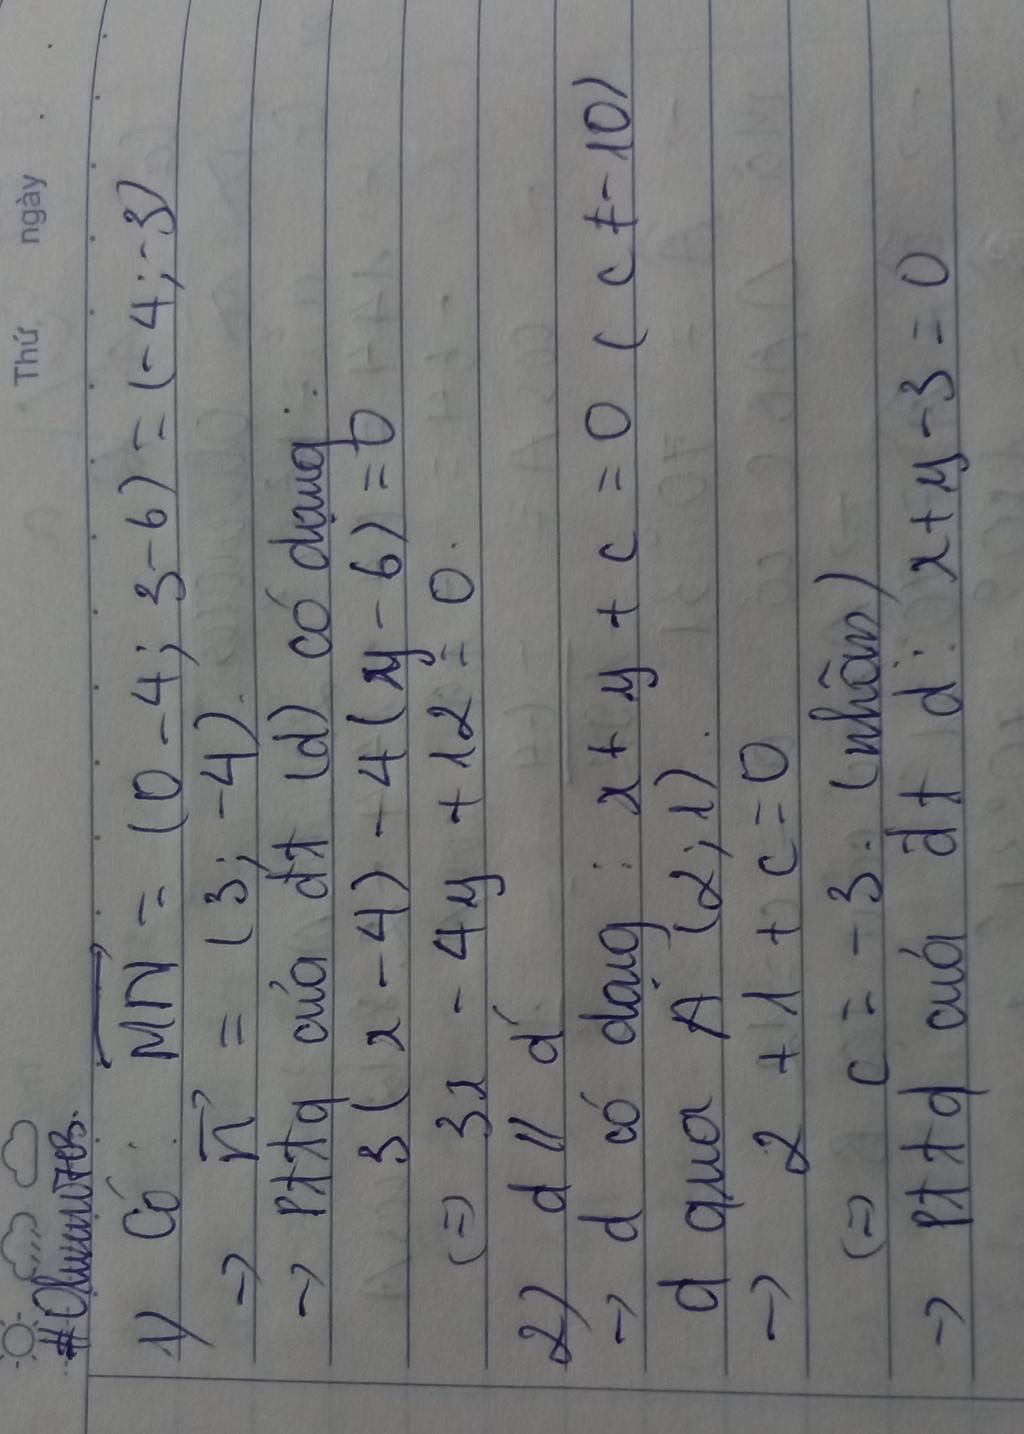 Thứ ngày
#Olwwwiizeb.
1) Có : MN = (0-4; 3-6) = (-4; -3)
→ n = (3; -4).
→ PTTQ của đt (d) có dạng :
3(x-4) -4(y-6) = 0
(=) 3x - 4y + 12 = 0.
2) d // d'
→ d có dạng : x + y + c = 0 ( c ≠ -10)
d qua A (2; 1).
→ 2 + 1 + c = 0
(=) c = -3. (nhận)
→ PTTQ của đt d : x + y - 3 = 0